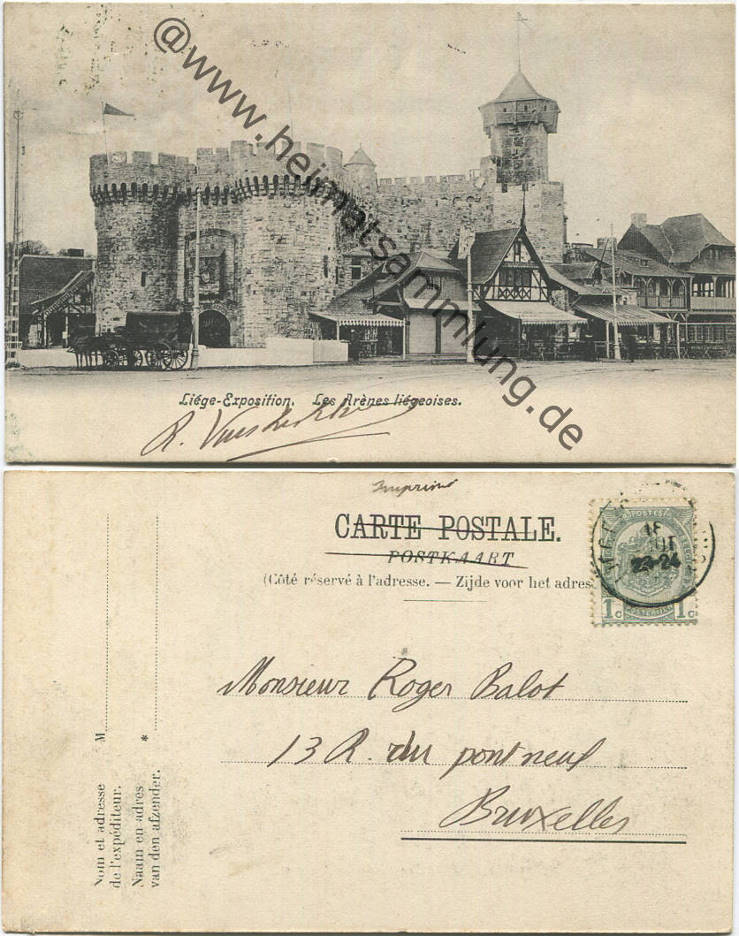 @www.heimatsammlung.de
Liége-Exposition. Les Arènes liégeoises.
R.
Imprimé
CARTE POSTALE.
POSTKAART
(Côté réservé à l'adresse. — Zijde voor het adres
POSTES
1c 1c
22-24
Monsieur Roger Balot
13 R. du pont neuf
Bruxelles
M
*
Nom et adresse
de l'expéditeur.
Naam en adres
van den afzender.